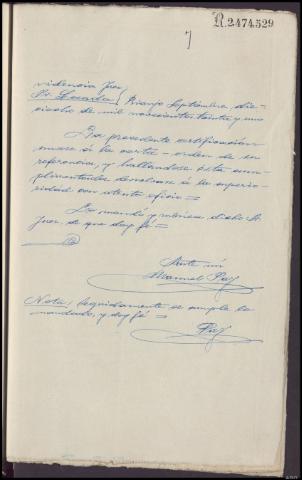 R.2474,529
videncia Juez
Sr. Losada Naranjo Septiembre, die-
ciocho de mil novecientos treinta y uno
La precedente certificación
unase á la carta-orden de su
referencia, y hallandose ésta cum-
plimentada devuelvase á la superio-
ridad con atento oficio =
Lo mando y rubrica dicho Sr
Juez de que doy fé =
Ante mi
Manuel Paz
Nota, Seguidamente se cumple lo
mandado, y doy fé =
Paz